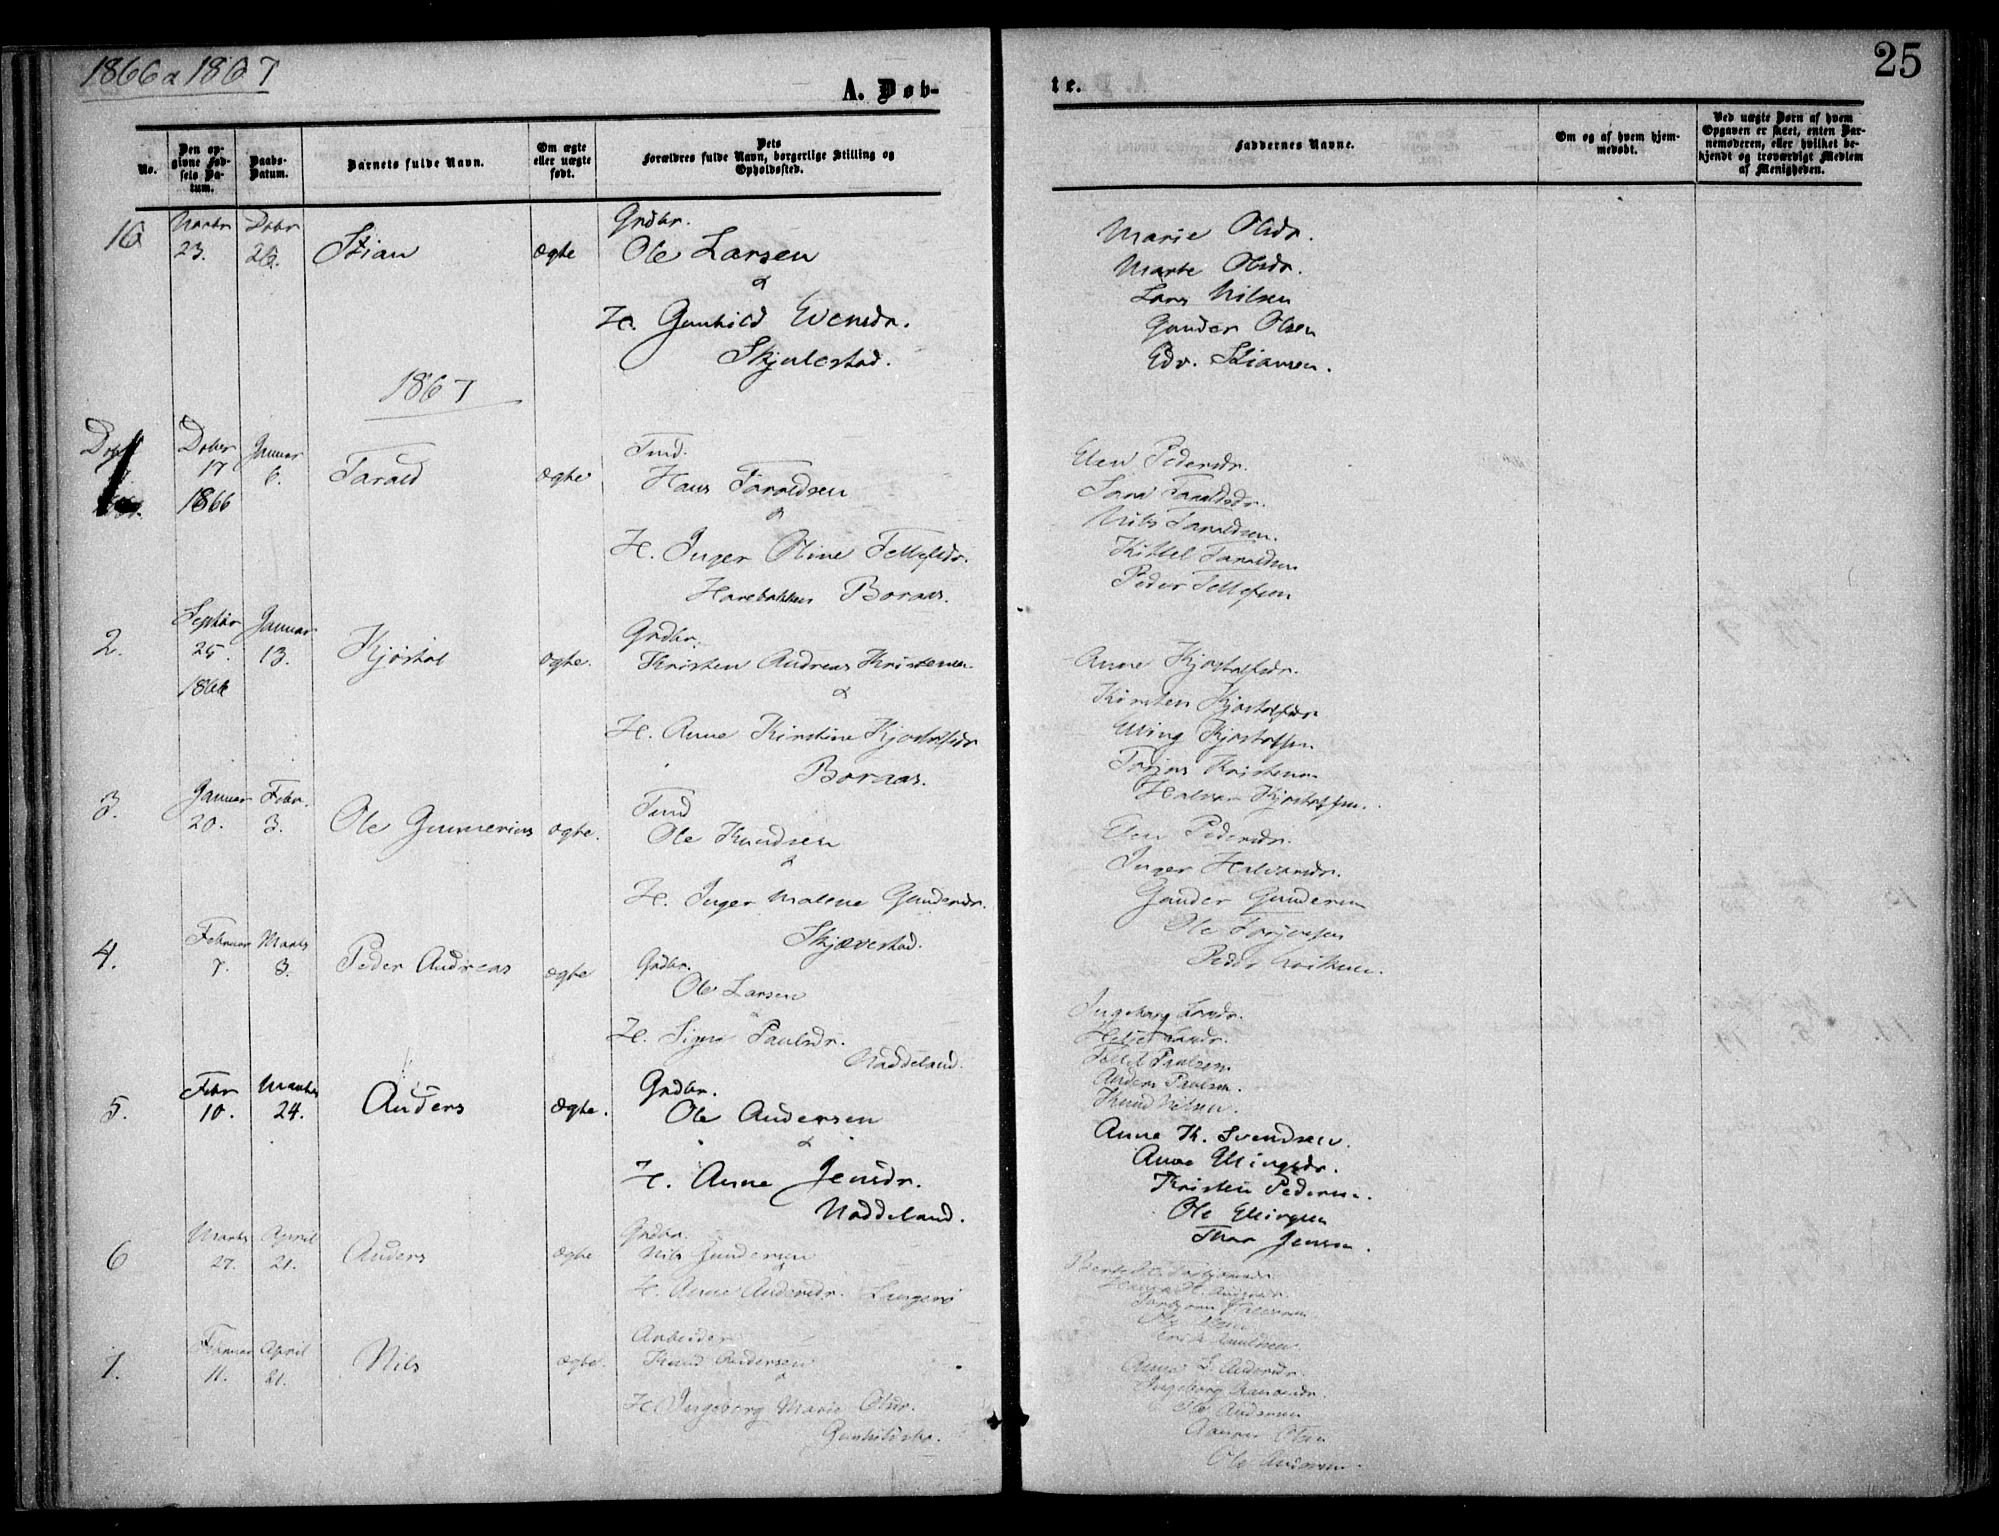 1866 a 1867
A. Døb-
te.
25
No.
Den op-
givne Fød-
sels Da-
tum.
Daabs-
Datum.
Barnets fulde Navn.
Om ægte
eller uægte
født.
Dets
Forældres fulde Navn, borgerlige Stilling og
Opholdssted.
Faddernes Navne.
Om og af hvem hjem-
medøbt.
Ved uægte Børn af hvem
Opgaven er skeet, enten Bar-
nemoderen, eller hvilket be-
kjendt og troværdigt Medlem
af Menigheden.
16
Novbr
23.
Dcbr
26.
Stian
ægte
Grdbr.
Ole Larsen
&
H. Gunhild Evensdr.
Skjulestad.
Marie Olsdr.
Marte Olsdr.
Lars Nilsen
Gunder Olsen
Edv. Stiansen.
1867
1
Dcber
17
1866
Januar
6.
Tarald
ægte
Tind.
Hans Taraldsen
&
H. Inger Oline Tellefsdr.
Harebakken Boraas.
Elen Pedersdr.
Sara Taraldsdr.
Nils Taraldsen.
Kittel Taraldsen
Peder Tellefsen
2.
Septbr
25.
1866
Januar
13.
Kjøstol
ægte.
Grdbr.
Kristen Andreas Kristensen
&
H. Anne Kirstine Kjøstolfsdr
Boraas.
Anne Kjøstolfsdr.
Kirsten Kjøstolfsdr
Elling Kjøstolfsen
Torjus Kristensen
Halvor Kjøstolfsen.
3.
Januar
20.
Febr.
3.
Ole Gunnerius
ægte.
Tind
Ole Knudsen
&
H. Inger Malene Gundersdr.
Skjævestad.
Elen Pedersdr.
Inger Halvorsdr.
Gunder Gundersen
Ole Torjussen
Peder
4.
Februar
7.
Marts
3.
Peder Andreas
ægte
Grdbr.
Ole Larsen
H. Signe Paulsdr.
Naddeland.
Ingeborg Larsdr.
Helje Larsdr.
Paulsen
Anders Paulsen.
Knud Nilsen.
5.
Febr
10.
Marts
24.
Anders
ægte.
Grdbr.
Ole Andersen
&
H. Anne Jensdr.
Naddeland.
Anne K. Svendsen.
Anne Ellingsdr.
Kristen Pedersen.
Ole Ellingsen
Thor Jensen.
6
Marts
27.
April
21.
Anders
ægte
Grdbr.
Nils Gundersen
&
H. Anne Andersdr. Langerø
7.
Februar
11.
April
21.
Nils
ægte.
Arbeider
Knud Andersen
&
H. Ingeborg Marie Olsdr.
Anna S. Andersdr.
Ingeborg
Ole Andersen
Olsen
Ole Andersen.